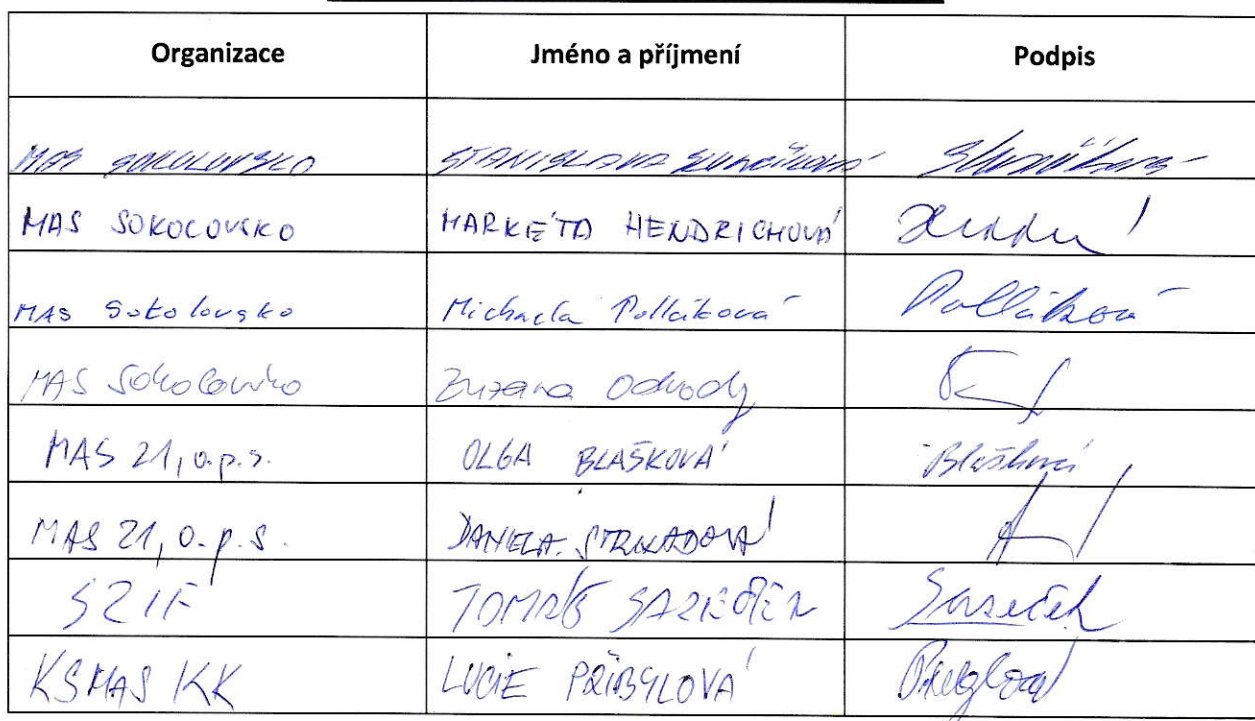 Organizace Jméno a příjmení Podpis
MAS SOKOLOVSKO STANISLAVA
MAS SOKOLOVSKO MARKÉTA HENDRICHOVÁ
MAS Sokolovsko Michaela Polláková Polláková
MAS Sokolovsko Zuzana Odvody
MAS 21, o.p.s. OLGA BLAŠKOVÁ Blašková
MAS 21, o.p.s. DANIELA STRNADOVÁ
SZIF TOMÁŠ
KSMAS KK LUCIE PŘIBYLOVÁ